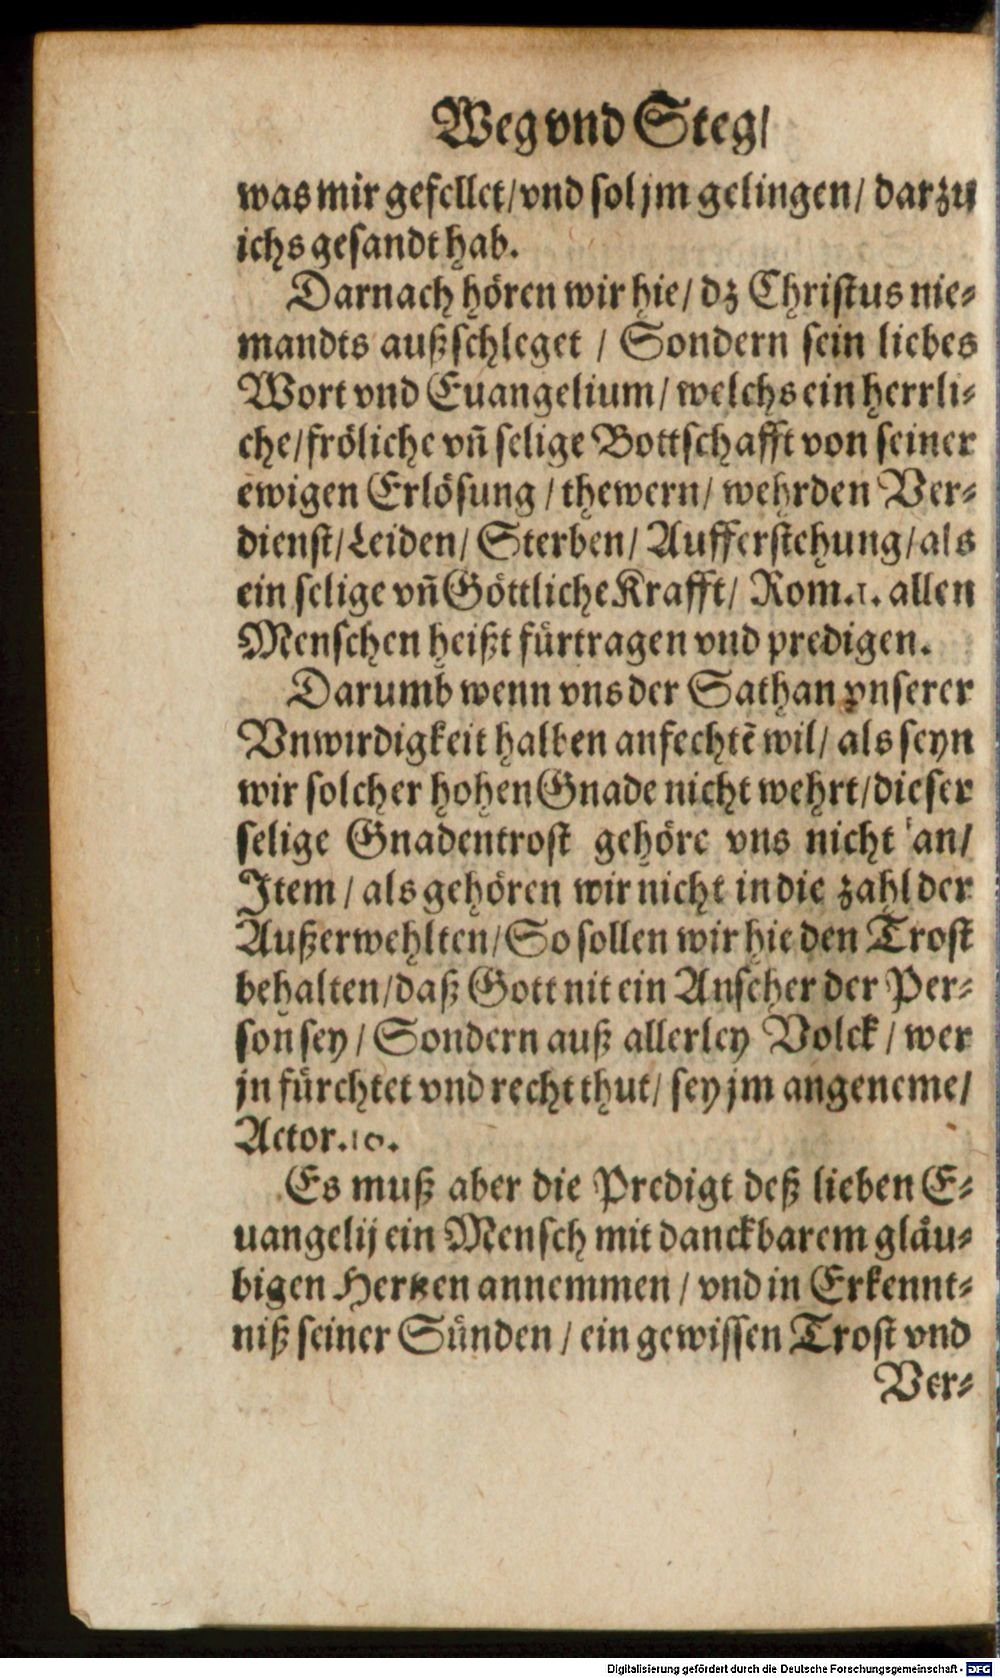 Weg vnd Steg/
was mir gefellet/ vnd sol jm gelingen/ darzu
ichs gesandt hab.
Darnach hören wir hie/ dz Christus nie-
mandts außschleget / Sondern sein liebes
Wort vnd Euangelium/ welchs ein herrli-
che/ fröliche vñ selige Bottschafft von seiner
ewigen Erlösung / thewern/ wehrden Ver-
dienst/ Leiden/ Sterben/ Aufferstehung/ als
ein selige vñ Göttliche Krafft/ Rom. 1. allen
Menschen heißt fürtragen vnd predigen.
Darumb wenn vns der Sathan vnserer
Vnwirdigkeit halben anfechtẽ wil/ als seyn
wir solcher hohen Gnade nicht wehrt/ dieser
selige Gnadentrost gehöre vns nicht an/
Item / als gehören wir nicht in die zahl der
Außerwehlten/ So sollen wir hie den Trost
behalten/ daß Gott nit ein Anseher der Per-
son sey / Sondern auß allerley Volck / wer
jn fürchtet vnd recht thut/ sey jm angeneme/
Actor. 10.
Es muß aber die Predigt deß lieben E-
uangelij ein Mensch mit danckbarem gläu-
bigen Hertzen annemmen / vnd in Erkennt-
niß seiner Sünden / ein gewissen Trost vnd
Ver-
Digitalisierung gefördert durch die Deutsche Forschungsgemeinschaft - DFG